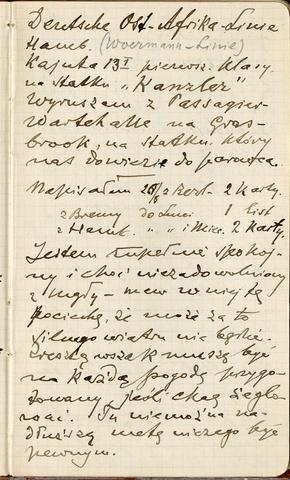 Deutsche Ost-Afrika-Linie
Hamb. (Woermann-Linie)
Kajuta 13 I pierwsz. klasy
na statku „Kanzler"
Wyruszam z Passagier-
Wartehalle na Gras-
brook, na statku, który
nas dowiezie do parowca.
Napisałem 20/8 z Berl. 2 karty.
z Bremy do Lusi 1 list
z Hamb. „ „ i Miec. 2 karty.
Jestem zupełnie spokoj-
ny i choć niezadowolniony
z mgły – mam w niej tę
pociechę, że może za to
silnego wiatru nie będzie.
Zresztą wszak muszę być
na każdą pogodę przygo-
towany, jeśli chcę żeglo-
wać. Tu niemożna na-
dłuższą metę niczego być
pewnym.